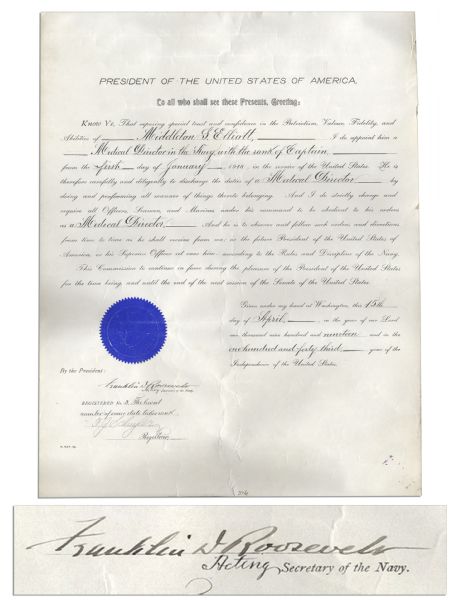 PRESIDENT OF THE UNITED STATES OF AMERICA.
To all who shall see these Presents, Greeting:
Know Ye, That reposing special trust and confidence in the Patriotism, Valour, Fidelity, and
Abilities of Middleton S. Elliott, I do appoint him a
Medical Director in the Navy with the rank of Captain
from the first day of January 1918 in the service of the United States. He is
therefore carefully and diligently to discharge the duties of a Medical Director by
doing and performing all manner of things thereto belonging. And I do strictly charge and
require all Officers, Seamen, and Marines under his command to be obedient to his orders
as a Medical Director. And he is to observe and follow such orders and directions
from time to time as he shall receive from me, or the future President of the United States of
America, or his Superior Officer set over him, according to the Rules and Discipline of the Navy.
This Commission to continue in force during the pleasure of the President of the United States
for the time being, and until the end of the next session of the Senate of the United States.
Given under my hand at Washington, this 15th
day of April in the year of our Lord
one thousand nine hundred and nineteen and in the
one hundred and forty third year of the
Independence of the United States.
By the President:
Franklin D Roosevelt
Acting Secretary of the Navy.
REGISTERED No. 3. The
number of same date take rank
Registrar
Franklin D Roosevelt
Acting Secretary of the Navy.